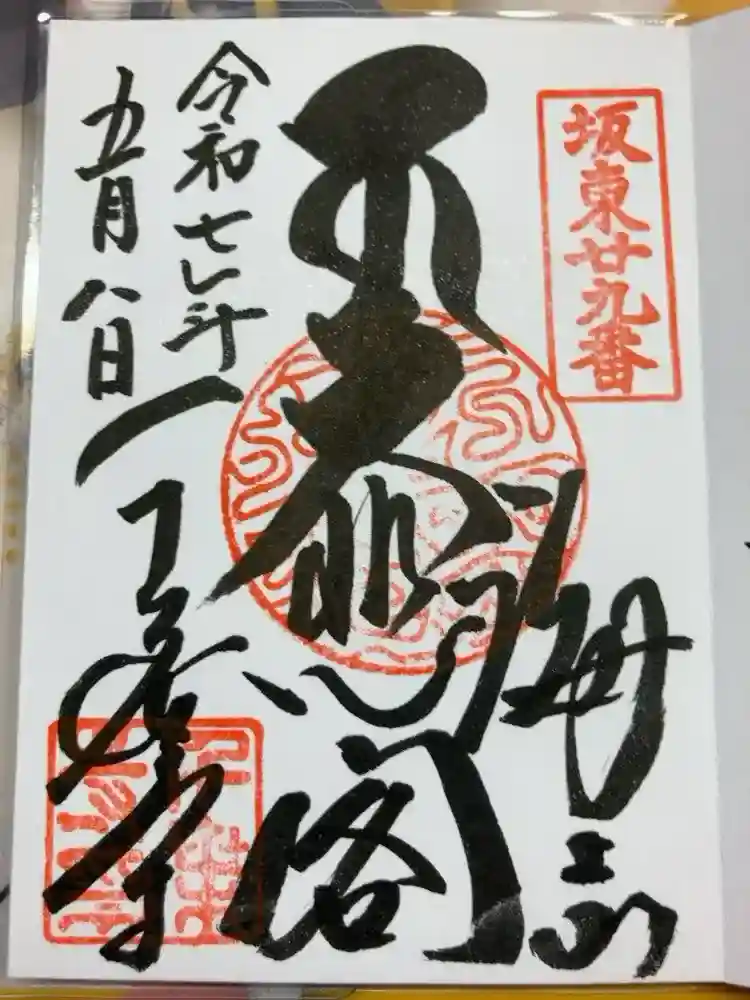 坂東廿九番
海上山
大悲閣
令和七年
五月八日
千葉寺